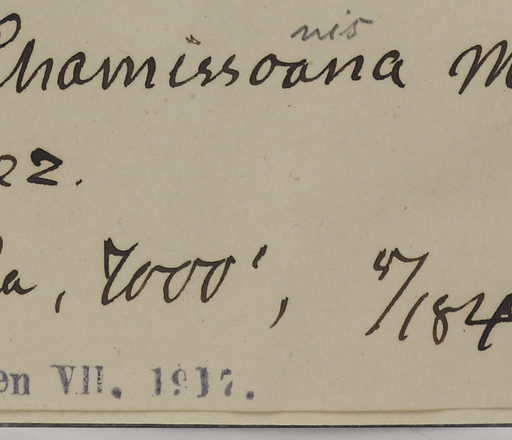 nis
Chamissoana M
ez.
a, 7000',
5/184
en VII. 1917.